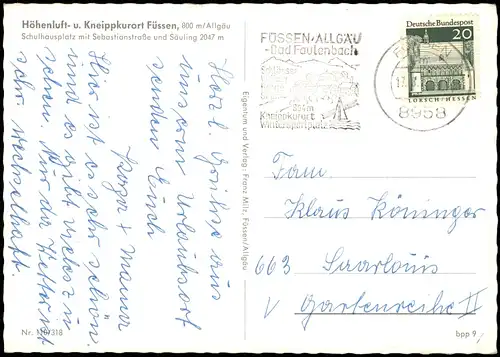 Höhenluft- u. Kneippkurort Füssen, 800 m/Allgäu
Schulhausplatz mit Sebastianstraße und Säuling 2047 m
Herzl. Grüße aus
unserm Urlaubsort
senden Euch
Papa + Mama
Hier ist es sehr schön
und es gibt vieles zu
sehen. Nur das Wetter ist
sehr wechselhaft.
Nr. 110/318
Eigentum und Verlag: Franz Milz, Füssen/Allgäu
FÜSSEN·ALLGÄU
-Bad Faulenbach
Kneippkurort
Wintersportplatz
8958
Deutsche Bundespost
20
LORSCH/HESSEN
Fam.
Klaus Köninger
663 Saarlouis
V Gartenreihe II
bpp 9